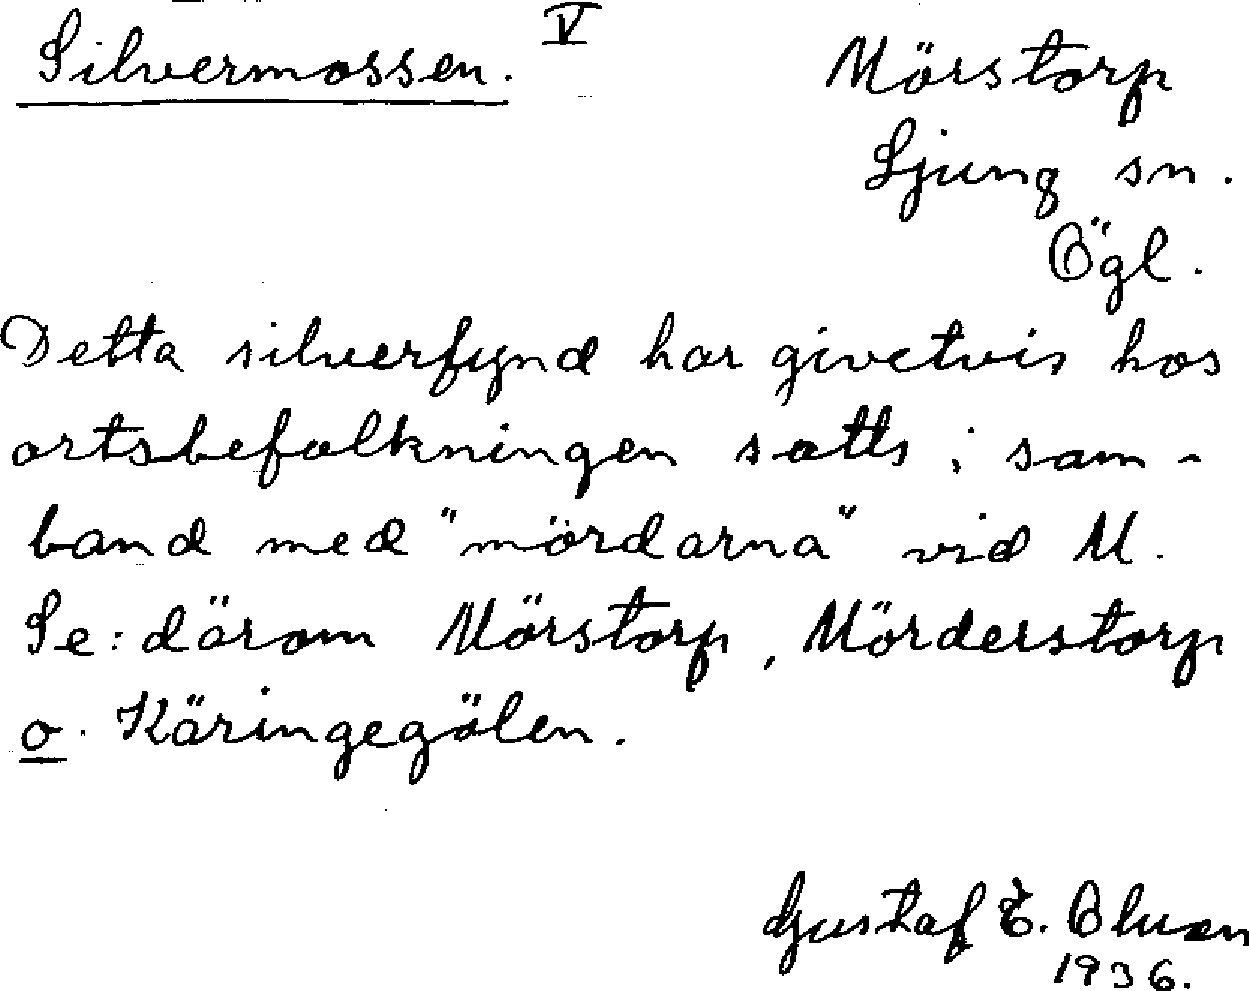 Silvermossen. V
Mörstorp
Ljung sn.
Ögl.
Detta silverfynd har givetvis hos
ortsbefolkningen satts i sam-
band med "mördarna" vid M.
Se: därom Mörstorp, Mörderstorp
o. Käringegölen.
Gustaf E.
1936.